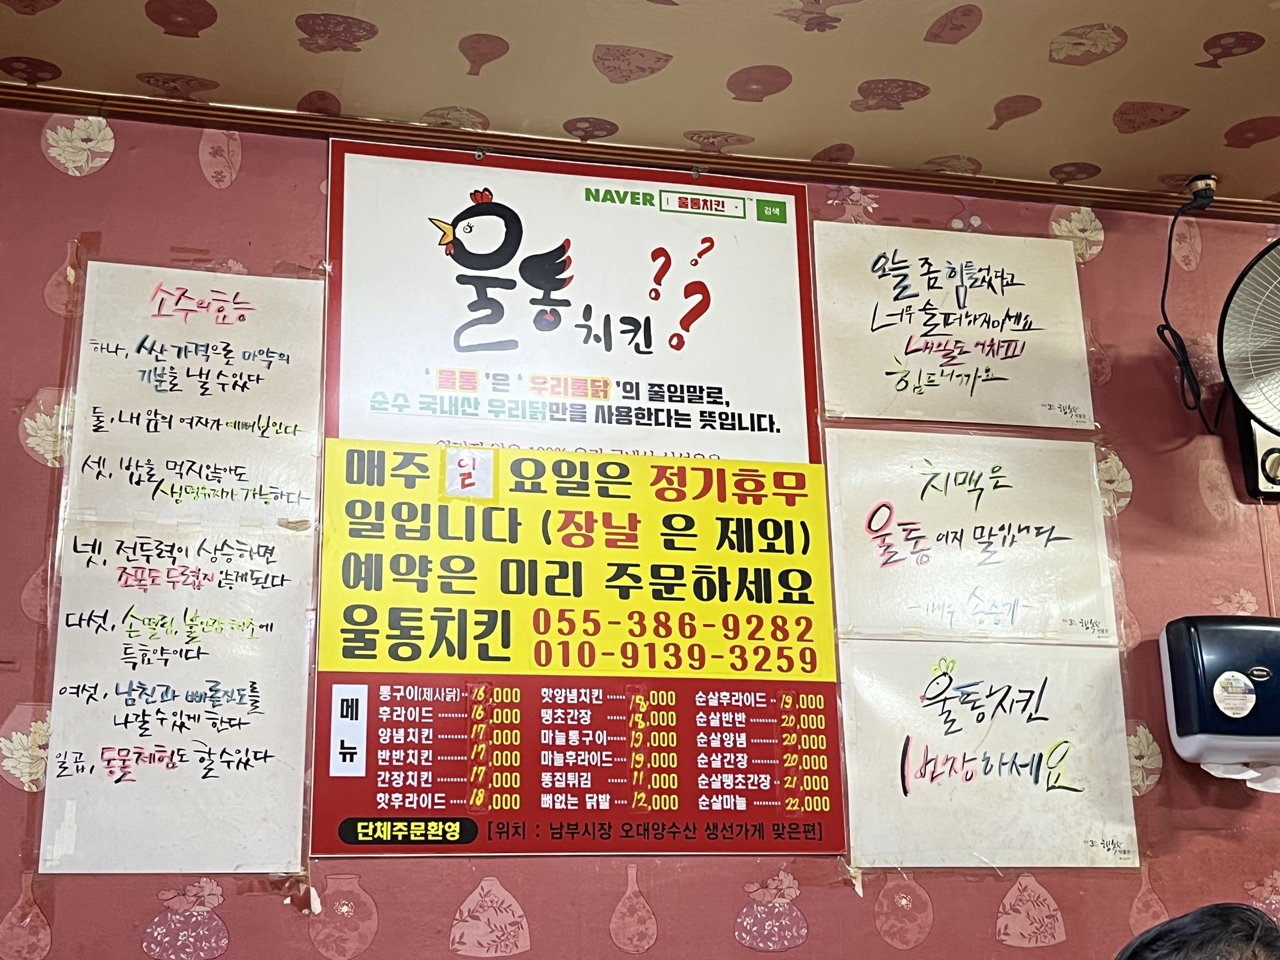 소주의 효능
하나, 싼 가격으로 마약의
기분을 낼 수 있다
둘, 내 앞의 여자가 예뻐 보인다
셋, 밥을 먹지 않아도
생명유지가 가능하다
넷, 전투력이 상승하면
조폭도 두렵지 않게 된다
다섯, 손떨림, 불안감 해소에
특효약이다
여섯, 남친과 빠른진도를
나갈 수 있게 한다
일곱, 동물체험도 할 수 있다
NAVER 울통치킨 검색
울통치킨???
'울통'은 '우리통닭'의 줄임말로,
순수 국내산 우리닭만을 사용한다는 뜻입니다.
매주 일 요일은 정기휴무
일입니다 (장날 은 제외)
예약은 미리 주문하세요
울통치킨 055-386-9282
010-9139-3259
메뉴
통구이(제사닭) 16,000
후라이드 16,000
양념치킨 17,000
반반치킨 17,000
간장치킨 17,000
핫후라이드 18,000
핫양념치킨 18,000
땡초간장 18,000
마늘통구이 19,000
마늘후라이드 19,000
똥집튀김 11,000
뼈없는 닭발 12,000
순살후라이드 19,000
순살반반 20,000
순살양념 20,000
순살간장 20,000
순살땡초간장 21,000
순살마늘 22,000
단체주문환영 [위치 : 남부시장 오대양수산 생선가게 맞은편]
오늘 좀 힘들었다고
너무 슬퍼하지마세요
내일도 어차피
힘드니까요
치맥은
울통이지 말입니다
-배우 송중기-
울통치킨
1번장하세요